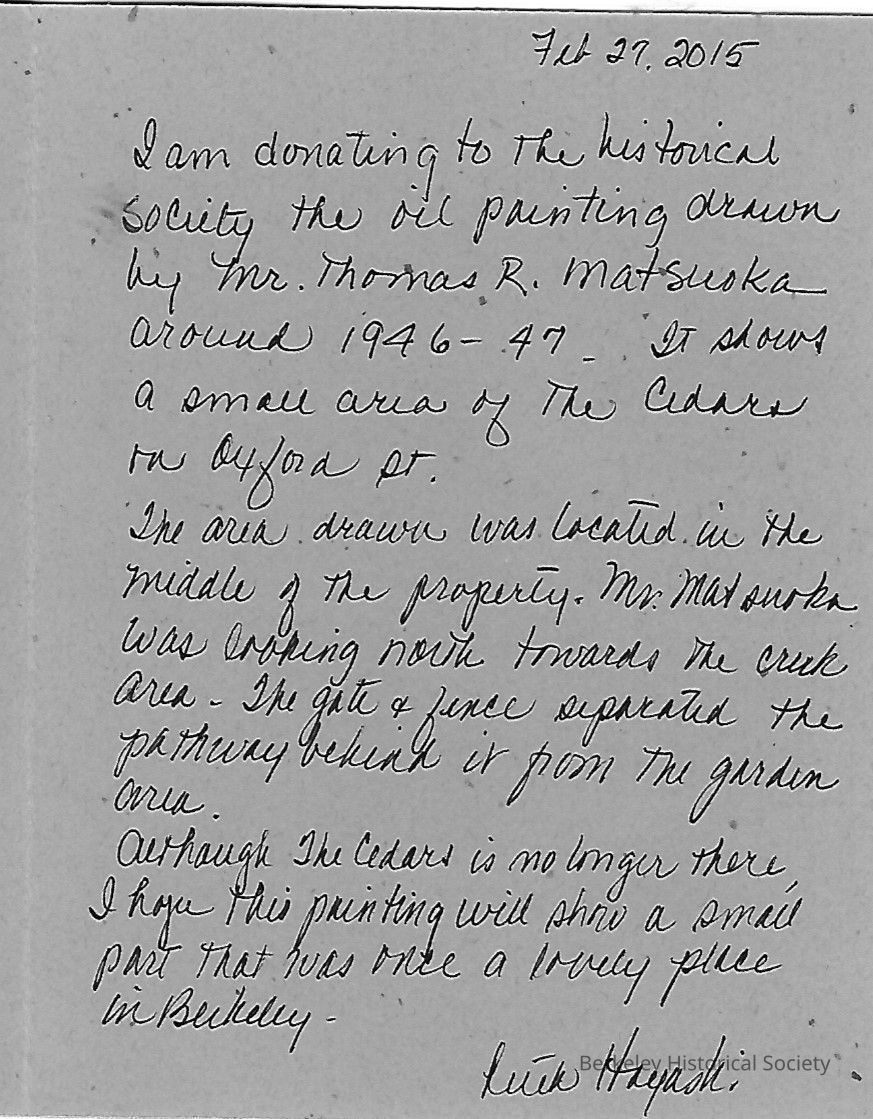 Feb 27, 2015
I am donating to the historical
society the oil painting drawn
by Mr. Thomas R. Matsuoka
around 1946-47. It shows
a small area of The Cedars
on Oxford St.
The area drawn was located in the
middle of the property. Mr. Matsuoka
was looking north towards the creek
area - The gate & fence separated the
pathway behind it from the garden
area.
Although The Cedars is no longer there,
I hope this painting will show a small
part that was once a lovely place
in Berkeley -
Ruth Hayashi
Berkeley Historical Society